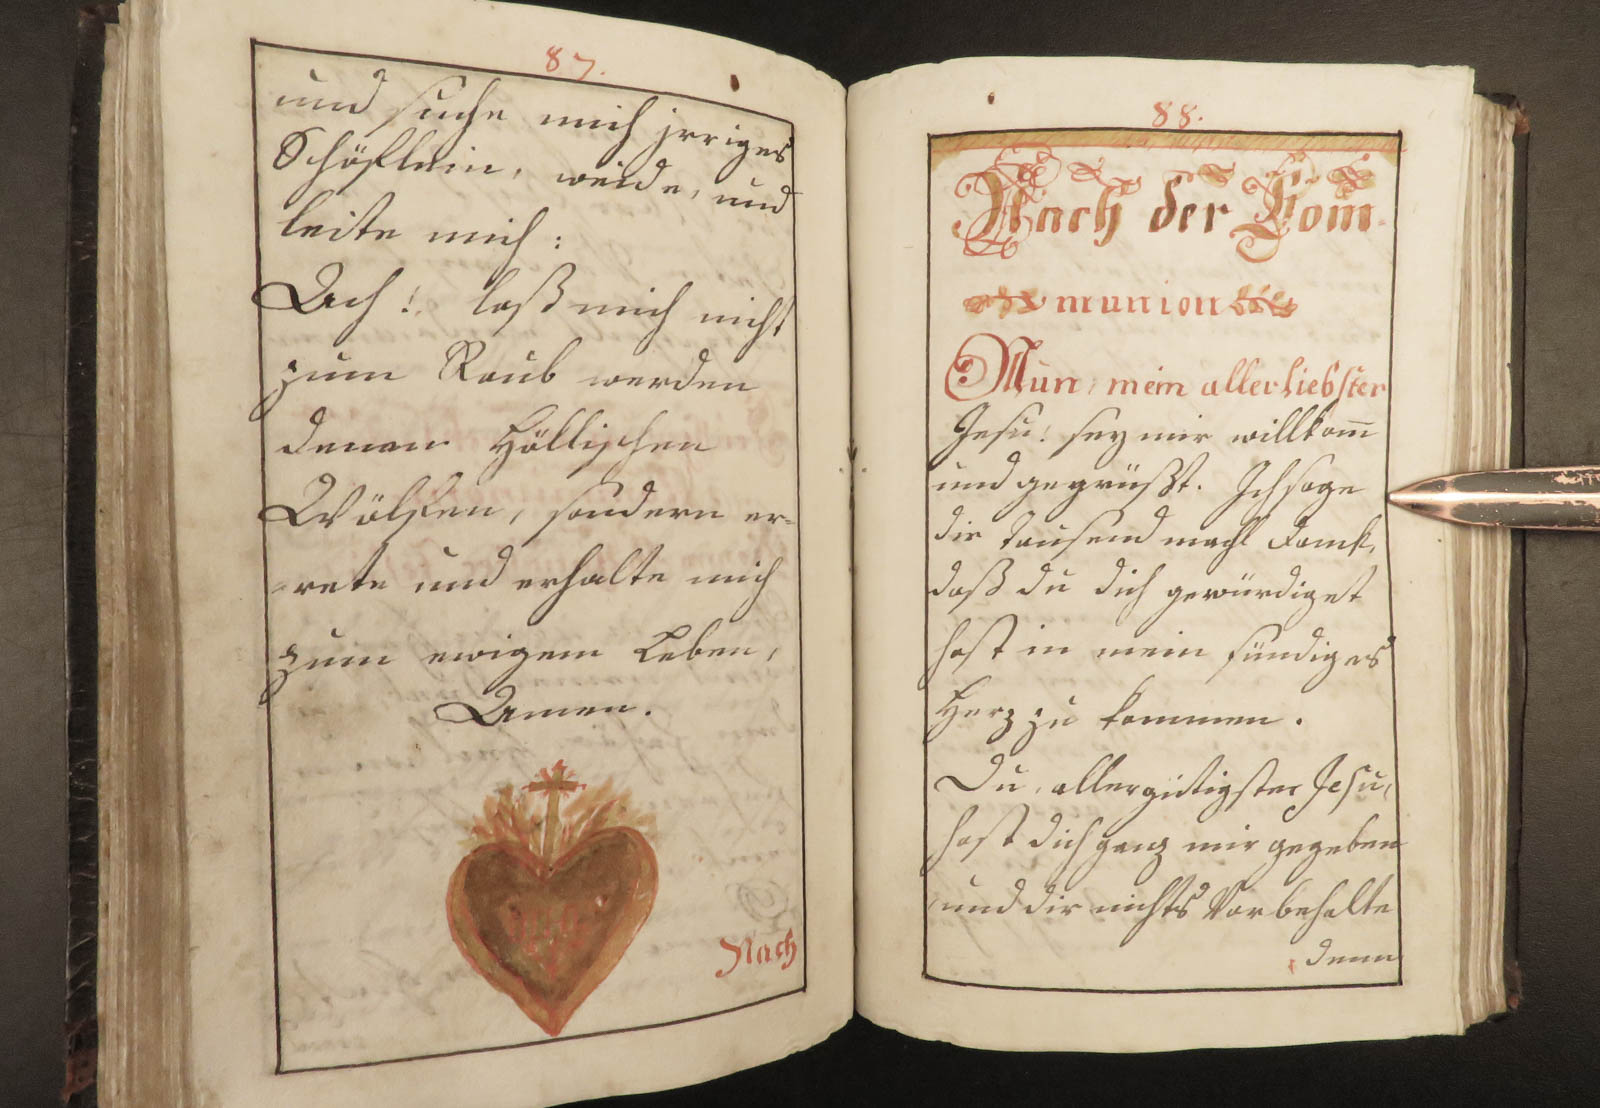 87.
und suche mich jrriges
Schöflein, weide, und
leite mich:
Ach! laß mich nicht
zum Raub werden
denen Höllischen
Wölfen, sondern er-
-rete und erhalte mich
zum ewigem Leben,
Amen.
Nach
88.
Nach der Com-
munion
Nun, mein allerliebster
Jesu! sey mir willkom̅
und gegrüßt. Ich sage
dir Tausend mahl Danck,
daß du dich gewürdiget
hast in mein sündiges
Herz zu kommen.
Du, allergütigster Jesu,
hast dich ganz mir gegeben
und dir nichts Vorbehalte
denn